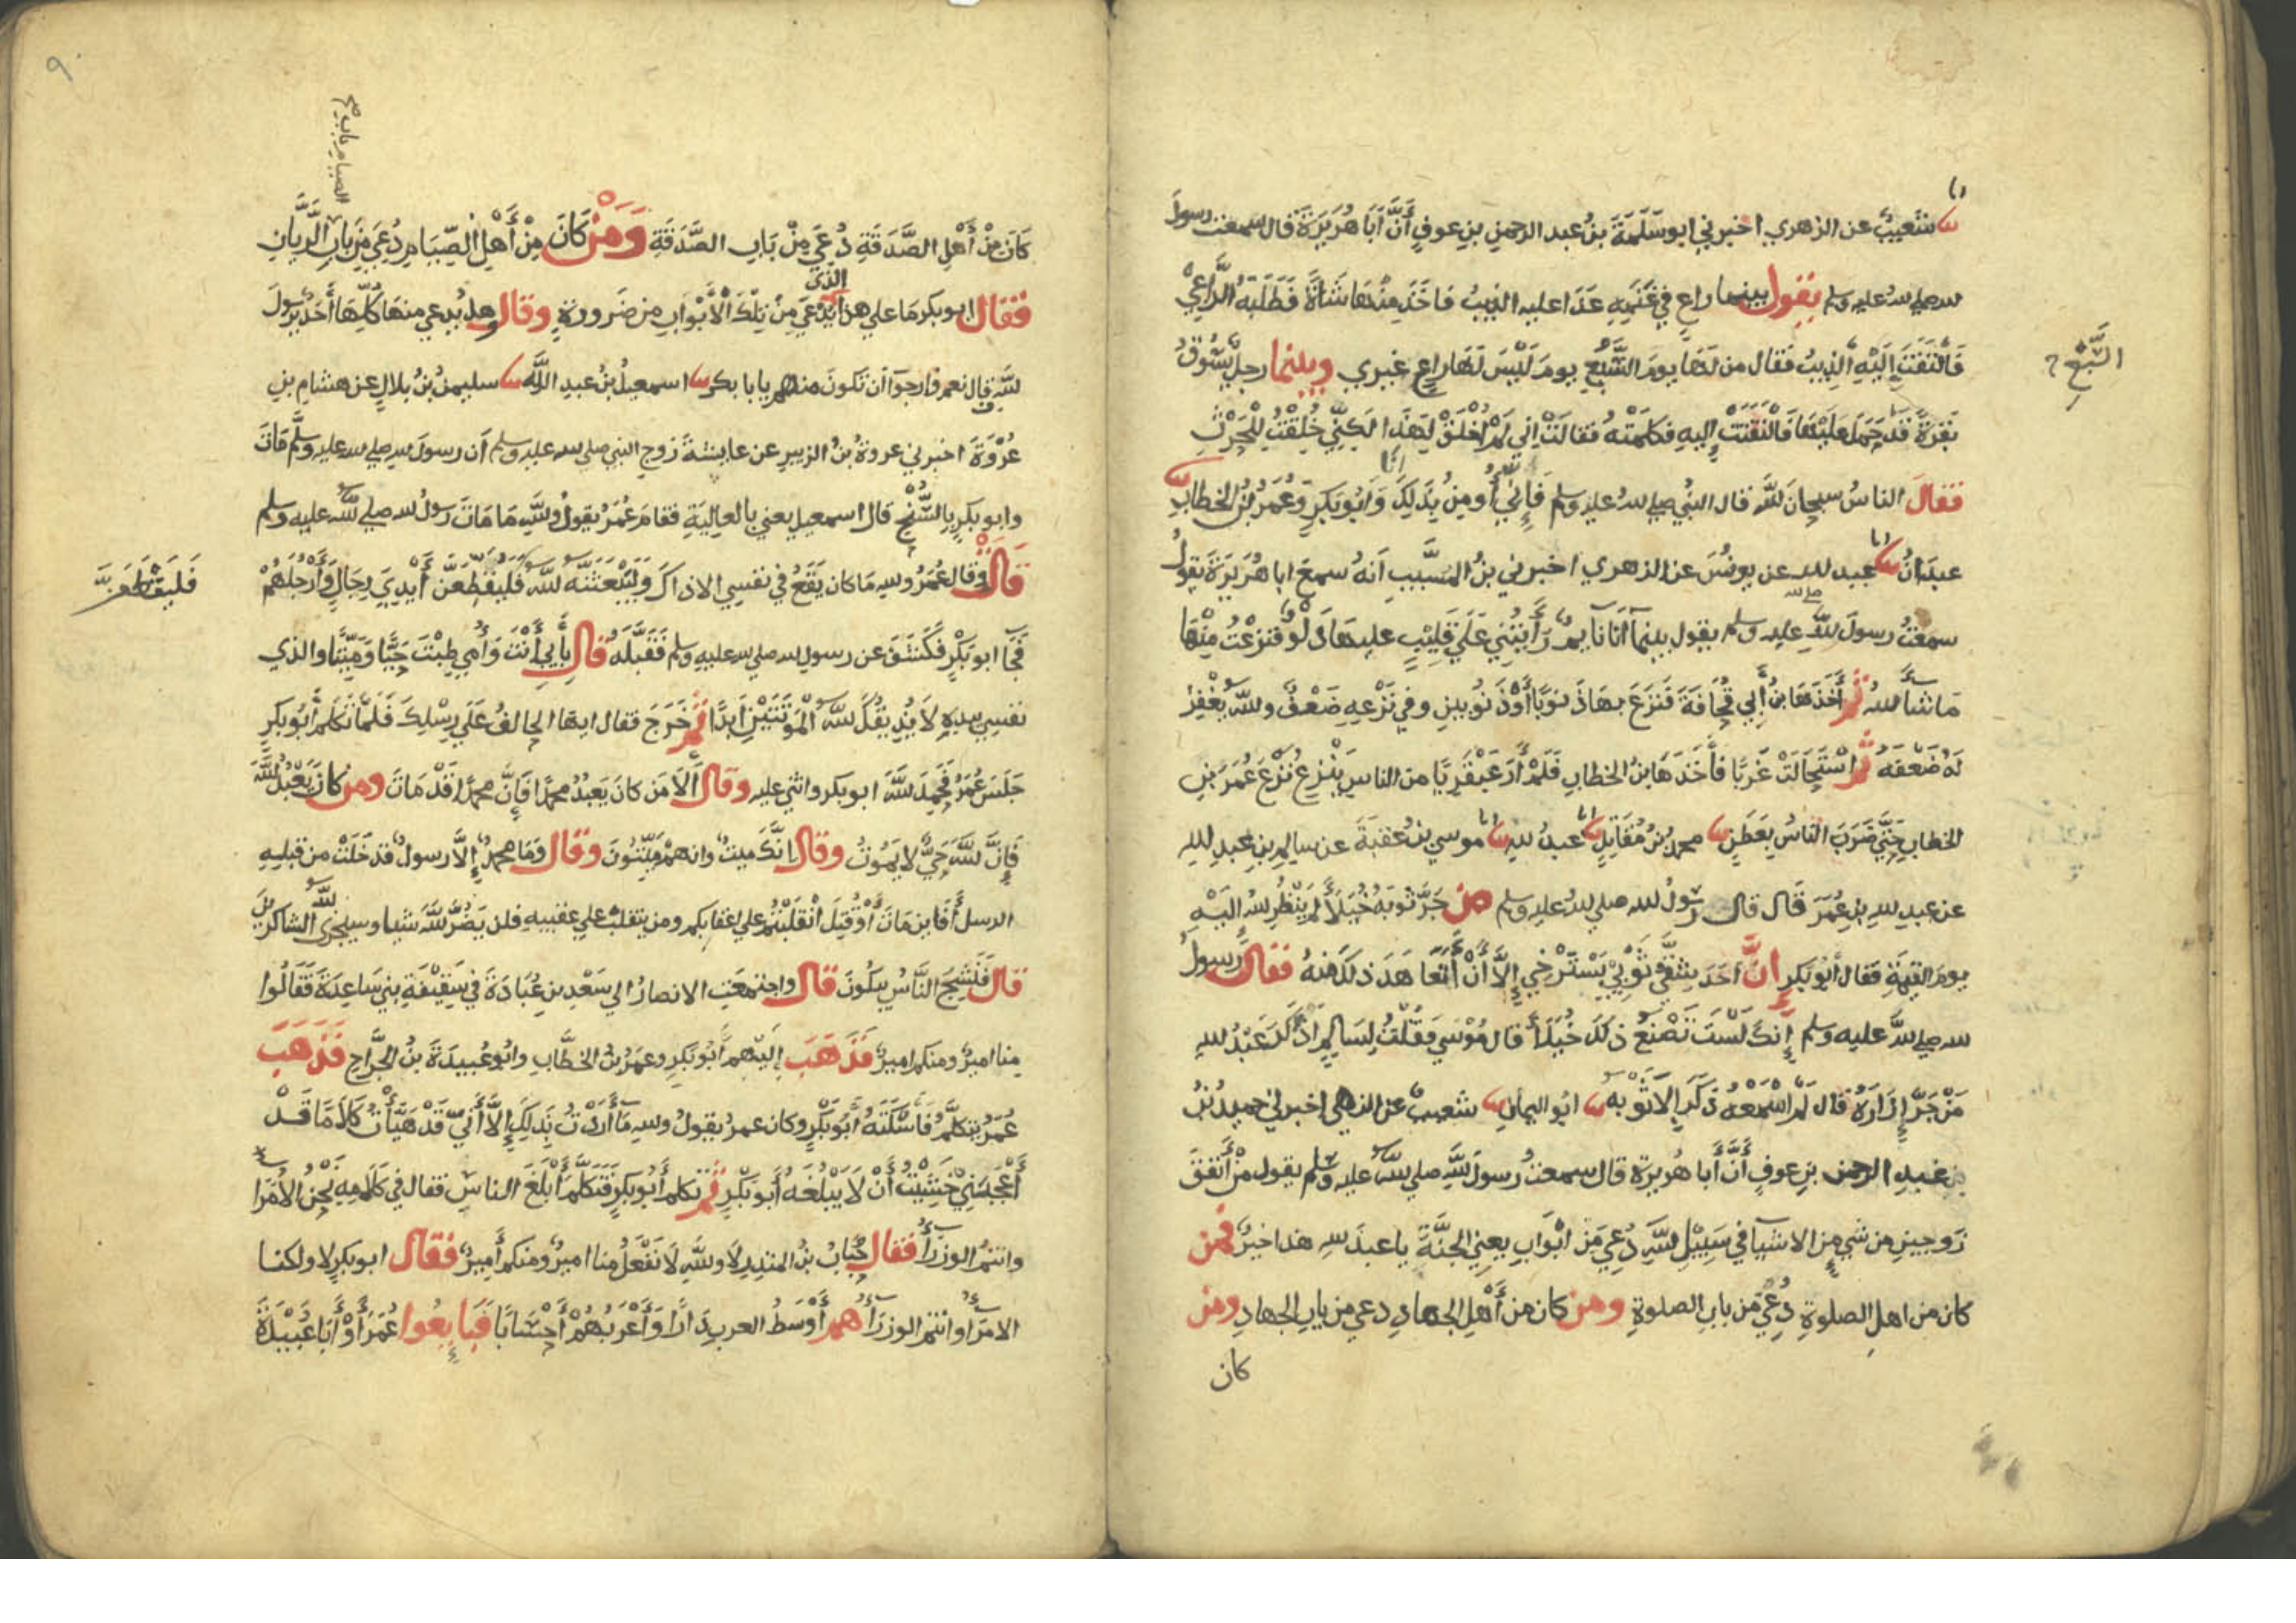 شعيب عن الزهري اخبرني ابو سَلَمَةَ بنُ عبد الرحمنِ بنِ عوفٍ أَنَّ أَبَا هُرَيْرَةَ قال سمعت رسولَ
الله صلي الله عليه وسلم يقول بينما راعٍ في غَنَمِهِ عَدَا عليه الذيبُ فاخَذَ مِنْهَا شَاةً فَطَلَبَهُ الرَّاعِيْ
فَالْتَفَتَ إِلَيْهِ الذِيبُ فقال من لَهَا يومَ السَّبُعِ يومَ لَيْسَ لَهَا راعٍ غيري وبينما رجلٌ يَسُوْقُ
السَّبْعِ
بَقَرَةً قَدْ حَمَلَ عَلَيْهَا فَالْتَفَتَتْ إِليهِ فكلمَتْهُ فقالتْ اِني لَمْ اُخْلَقْ لِهَذَا لَكِنِّي خُلِقْتُ لِلْحَرْثِ
فقالَ الناسُ سبحانَ الله قال النبيُ صلي الله عليه وسلم فَإِنِّيْ أُومِنُ بِذَلِكَ وَأَبُو بَكرٍ وَعُمَرُ بْنُ الخطابِ
انا
عبدَانُ عبد الله عن يونُسَ عن الزهري اخبرني بنُ المسَيَّبِ اَنهُ سمعَ ابا هُرَيرَةَ يقولُ
سمعتُ رسولَ الله صلي الله عليه وسلم يقول بينمآ اَنَا نَايمٌ رَأَيْتُنِي عَلَي قَلِيْبٍ عليهَا دَلْوٌ فنزعْتُ مِنْهَا
مَا شآ الله ثم أَخَذَهَا بنُ أَبِي قُحَافَةَ فَنَزَعَ بهَا ذَنوبًا أَوْ ذَنُوبينِ وفي نَزْعِهِ ضَعْفٌ والله يَغْفِرُ
لَهُ ضَعْفَهُ ثم اسْتَحَالَتْ غَرْبًا فأَخَذَهَا بنُ الخطابِ فَلَمْ أَرَ عَبْقَرِيًّا من الناسِ يَنْزِعُ نَزْعَ عُمَرَ بنِ
الخطابِ حَتَّي ضَرَبَ الناسُ بِعَطَنٍ محمدُ بنُ مُقَاتِلٍ عبدُ الله موسي بنُ عقبَةَ عن سالمِ بنِ عبدِ الله
عن عبدِ الله بنِ عُمَرَ قَال قال رسُولُ الله صلي الله عليه وسلم من جَرَّ ثوبَهُ خُيَلَاءَ لَم يَنْظُرِ الله إِلَيْهِ
يومَ القيمَةِ فقال أَبُو بكرٍ اِنَّ اَحَدَ شِقَّيْ ثَوْبِيْ يَسْتَرْخِي إِلَّا أَنْ أَتَعَاهَدَ ذلكَ منهُ فقال رَسولُ
الله صلي الله عليه وسلم إِنكَ لَسْتَ تَصْنَعُ ذلكَ خُيَلَاءَ قال مُوْسَي فَقُلْتُ لِسَالِمٍ أَذَكَرَ عَبْدُ الله
مَنْ جَرَّ إِزَارَهُ قال لَمْ اَسْمَعْهُ ذَكَرَ إِلَّا ثَوْبَهُ ابُو اليمانِ شعيبٌ عن الزهري اخبرني حميدُ بْنُ
بن عبدِ الرحمنِ بنِ عوفٍ أَنَّ أَبا هُريرَةَ قال سمعتُ رسولَ الله صلي الله عليه وسلم يقول مَنْ أَنفَقَ
زوجينِ من شيءٍ من الاشيآ في سَبِيْلِ الله دُعِيَ مِن ابْوَابِ يعني الجنَّةَ يا عبدَ الله هذا خيرٌ فمن
كان من اهلِ الصلوةِ دُعِيَ من بابِ الصلوةِ ومن كان من أَهْلِ الجهادِ دعي من بابِ الجهادِ ومن
كان
٩٠
الصيام باب
كَانَ مِنْ أَهْلِ الصَّدَقَةِ دُعِيَ مِنْ بَابِ الصَّدَقَةِ وَمَنْ كَانَ مِنْ أَهْلِ الصِّيَامِ دُعِيَ مِنْ بَابِ الرَّيَّانِ
فقال ابو بكر مَا علي هذا الذي يُدْعَيَ مِنْ تِلْكَ الأَبْوابِ من ضَرورةٍ وقال هل يُدعي منها كُلِّهَا أَحَدٌ يرسولَ
الله قال نعم وارجوا أن تكونَ منهم يابا بكر اسمعيلُ بنُ عبدِ اللَّه سليمنُ بْنُ بلالٍ عن هشامِ بنِ
عُرْوَةَ اخبرني عروةُ بنُ الزبيرِ عن عايشةَ زوجِ النبي صلي الله عليه وسلم أن رسولَ الله صلي الله عليه وسلَّم مَاتَ
وابو بكرٍ بالسُّنْحِ قال اسمعيل يعني بالعالِيَةِ فقام عُمَرُ يقولُ والله مَا مَاتَ رسولُ الله صلي الله عليه وسلم
قال وقال عُمَرُ والله مَا كان يَقَعُ في نفسِي الا ذاكَ وَلَيَبْعَثَنَّهُ الله فَلَيُقَطِّعَنَّ أَيْدِيَ رجَالٍ وَأَرْجُلَهُمْ
فَلَيَقْطَعَنَّ
فَجَآ ابو بَكْرٍ فَكَشَفَ عن رسولِ الله صلي الله عليه وسلم فَقَبَّلَهُ قال بِأَبِي أَنْتَ وَأُمِي طِبْتَ حَيًّا وَمَيِّتًا والذي
نفسِي بيدِهِ لا يُذِيقُكَ الله الْمَوْتَتَيْنِ أَبَدًا ثم خَرَجَ فقال ايها الحالفُ عَلَي رِسْلِكَ فَلَمَّا تَكَلَّمَ أَبُو بَكرٍ
جَلَسَ عُمَرُ فَحَمِدَ اللَّهَ ابو بكرٍ واثني عليه وقال أَلَا مَن كانَ يَعْبُدُ محمدًا فَإِنَّ محمدًا قَدْ مَاتَ ومن كانَ يَعْبُدُ اللَّهَ
فَإِنَّ اللَّهَ حَيٌّ لا يَمُوتُ وقال إِنكَ مَيتٌ وانهم مَيِّتُونَ وقال وَمَا محمدٌ إِلَّا رسولٌ قد خَلَتْ من قبلِهِ
الرسل أَفَاين مَاتَ أَوْ قُتِلَ انْقَلَبْتُم علي اعقابكم ومن ينقلبْ علي عقبيهِ فلن يَضُرَّ اللَّهَ شيا وسيجزي الله الشاكرينَ
قال فَنَشِجَ النَّاسُ يبكونَ قال واجتمعَتِ الانصارُ الي سَعْدِ بنِ عُبَادَةَ في سَقِيْفَةِ بني سَاعِدَةَ فَقَالُوا
منا اميرٌ ومنكم اميرٌ فَذَهَبَ إِليْهم أَبُو بَكرٍ وعمرُ بنُ الخطَّابِ وابُو عُبيدَةَ بنُ الجَرَّاحِ فَذَهَبَ
عُمَرُ يتكلَّمُ فَأَسْكَتَهُ أَبُو بَكْرٍ وكان عمرُ يقولُ والله مَآ أَرَدْتُ بِذَلِكَ إِلَّا أَنِّيْ قَدْ هَيَّأْتُ كَلَامًا قَدْ
أَعْجَبَنِيْ خَشِيْتُ أَنْ لَا يَبْلُغَهُ أَبُو بَكْرٍ ثم تكلم أَبُو بَكرٍ فَتَكَلَّمَ أَبْلَغَ الناسِ فقال في كَلَامِهِ نَحْنُ الأُمَرَآ
وانتمُ الوزرآ فقال حُبَابُ بنُ المنذرِ لَا والله لَا نَفْعَلُ منا اميرٌ ومنكم أَمِيرٌ فقال ابو بكرٍ لا ولكنا
الامرآ وانتم الوزرآ هم أَوْسَطُ العربِ دَارًا وَأَعْرَبُهُمْ أَحْسَابًا فَبَايِعُوا عُمَرَ أَوْ أَبَا عُبَيْدَةَ